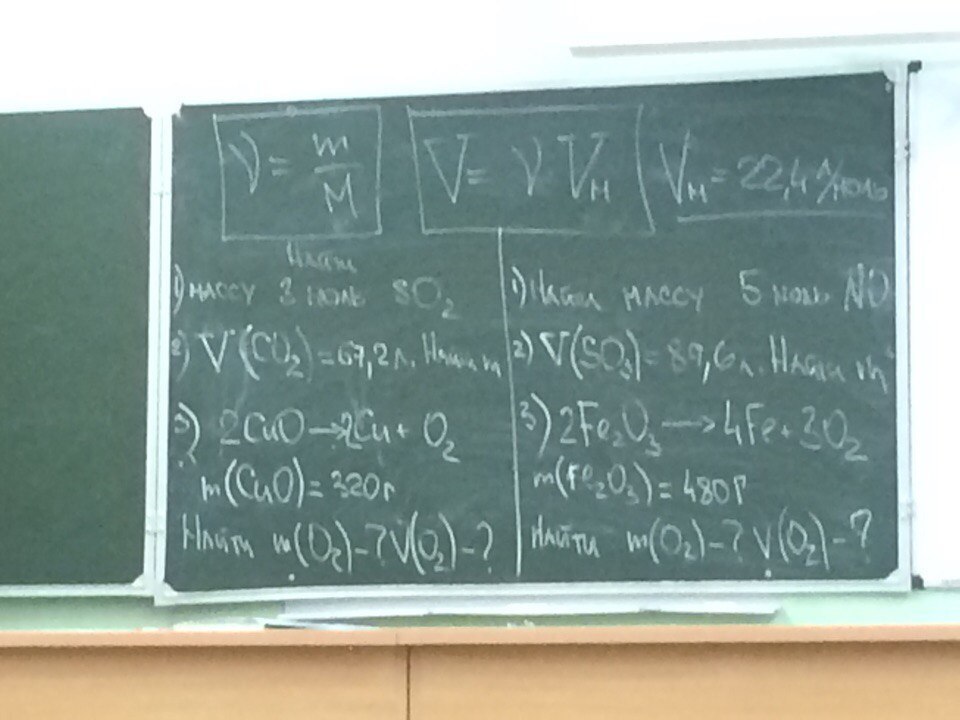 ν = m/M
V = ν V_M
V_M = 22,4 л/моль
Найти
1) массу 3 моль SO₂
2) V(CO₂) = 67,2 л. Найти m
3) 2CuO → 2Cu + O₂
m(CuO) = 320г
Найти m(O₂) – ? V(O₂) – ?
1) Найти массу 5 моль NO
2) V(SO₃) = 89,6 л. Найти m
3) 2Fe₂O₃ → 4Fe + 3O₂
m(Fe₂O₃) = 480г
Найти m(O₂) – ? V(O₂) – ?